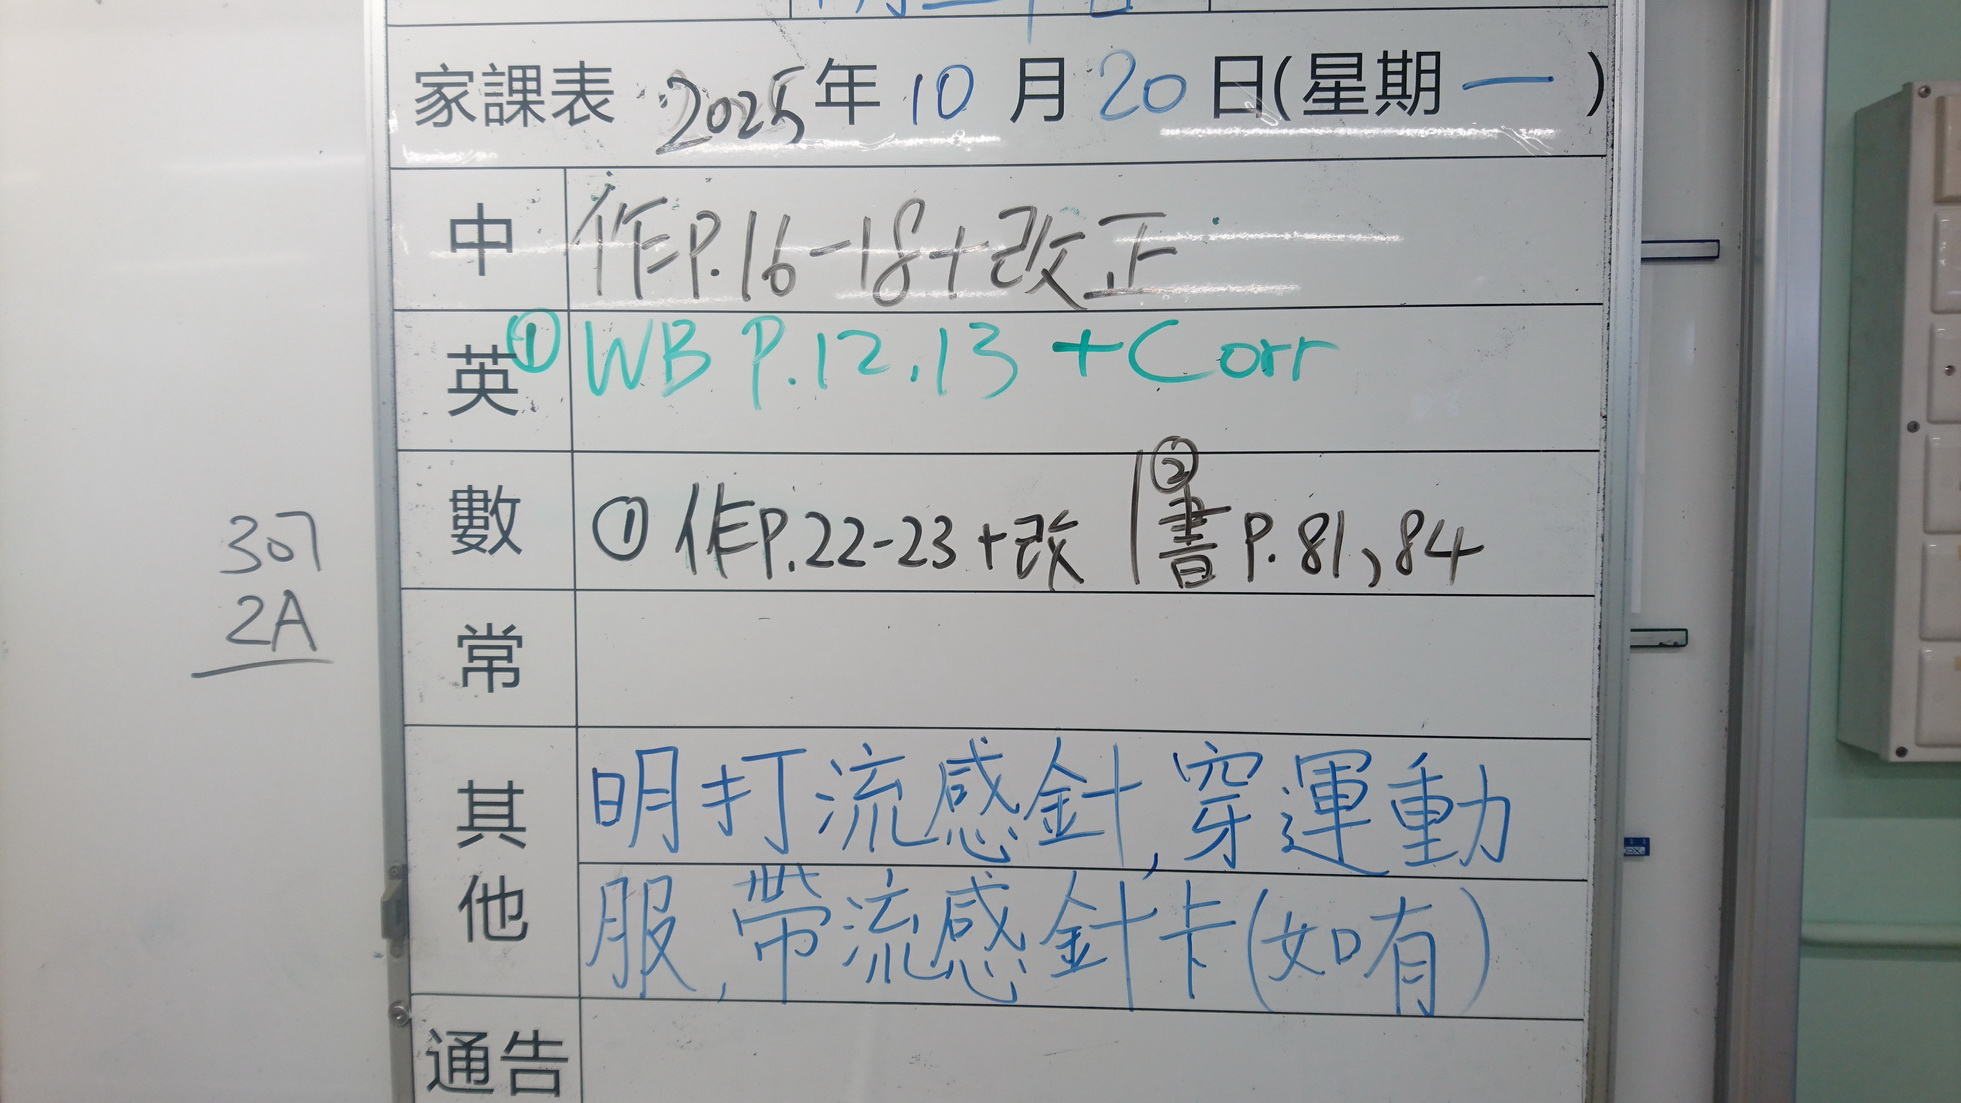 家課表 2025年10月20日(星期一)
中 作P.16-18+改正
英 ①WB P.12,13 +Corr
數 ① 作P.22-23+改 ②書P.81、84
常
其他 明打流感針,穿運動
服,帶流感針卡(如有)
通告
307
2A